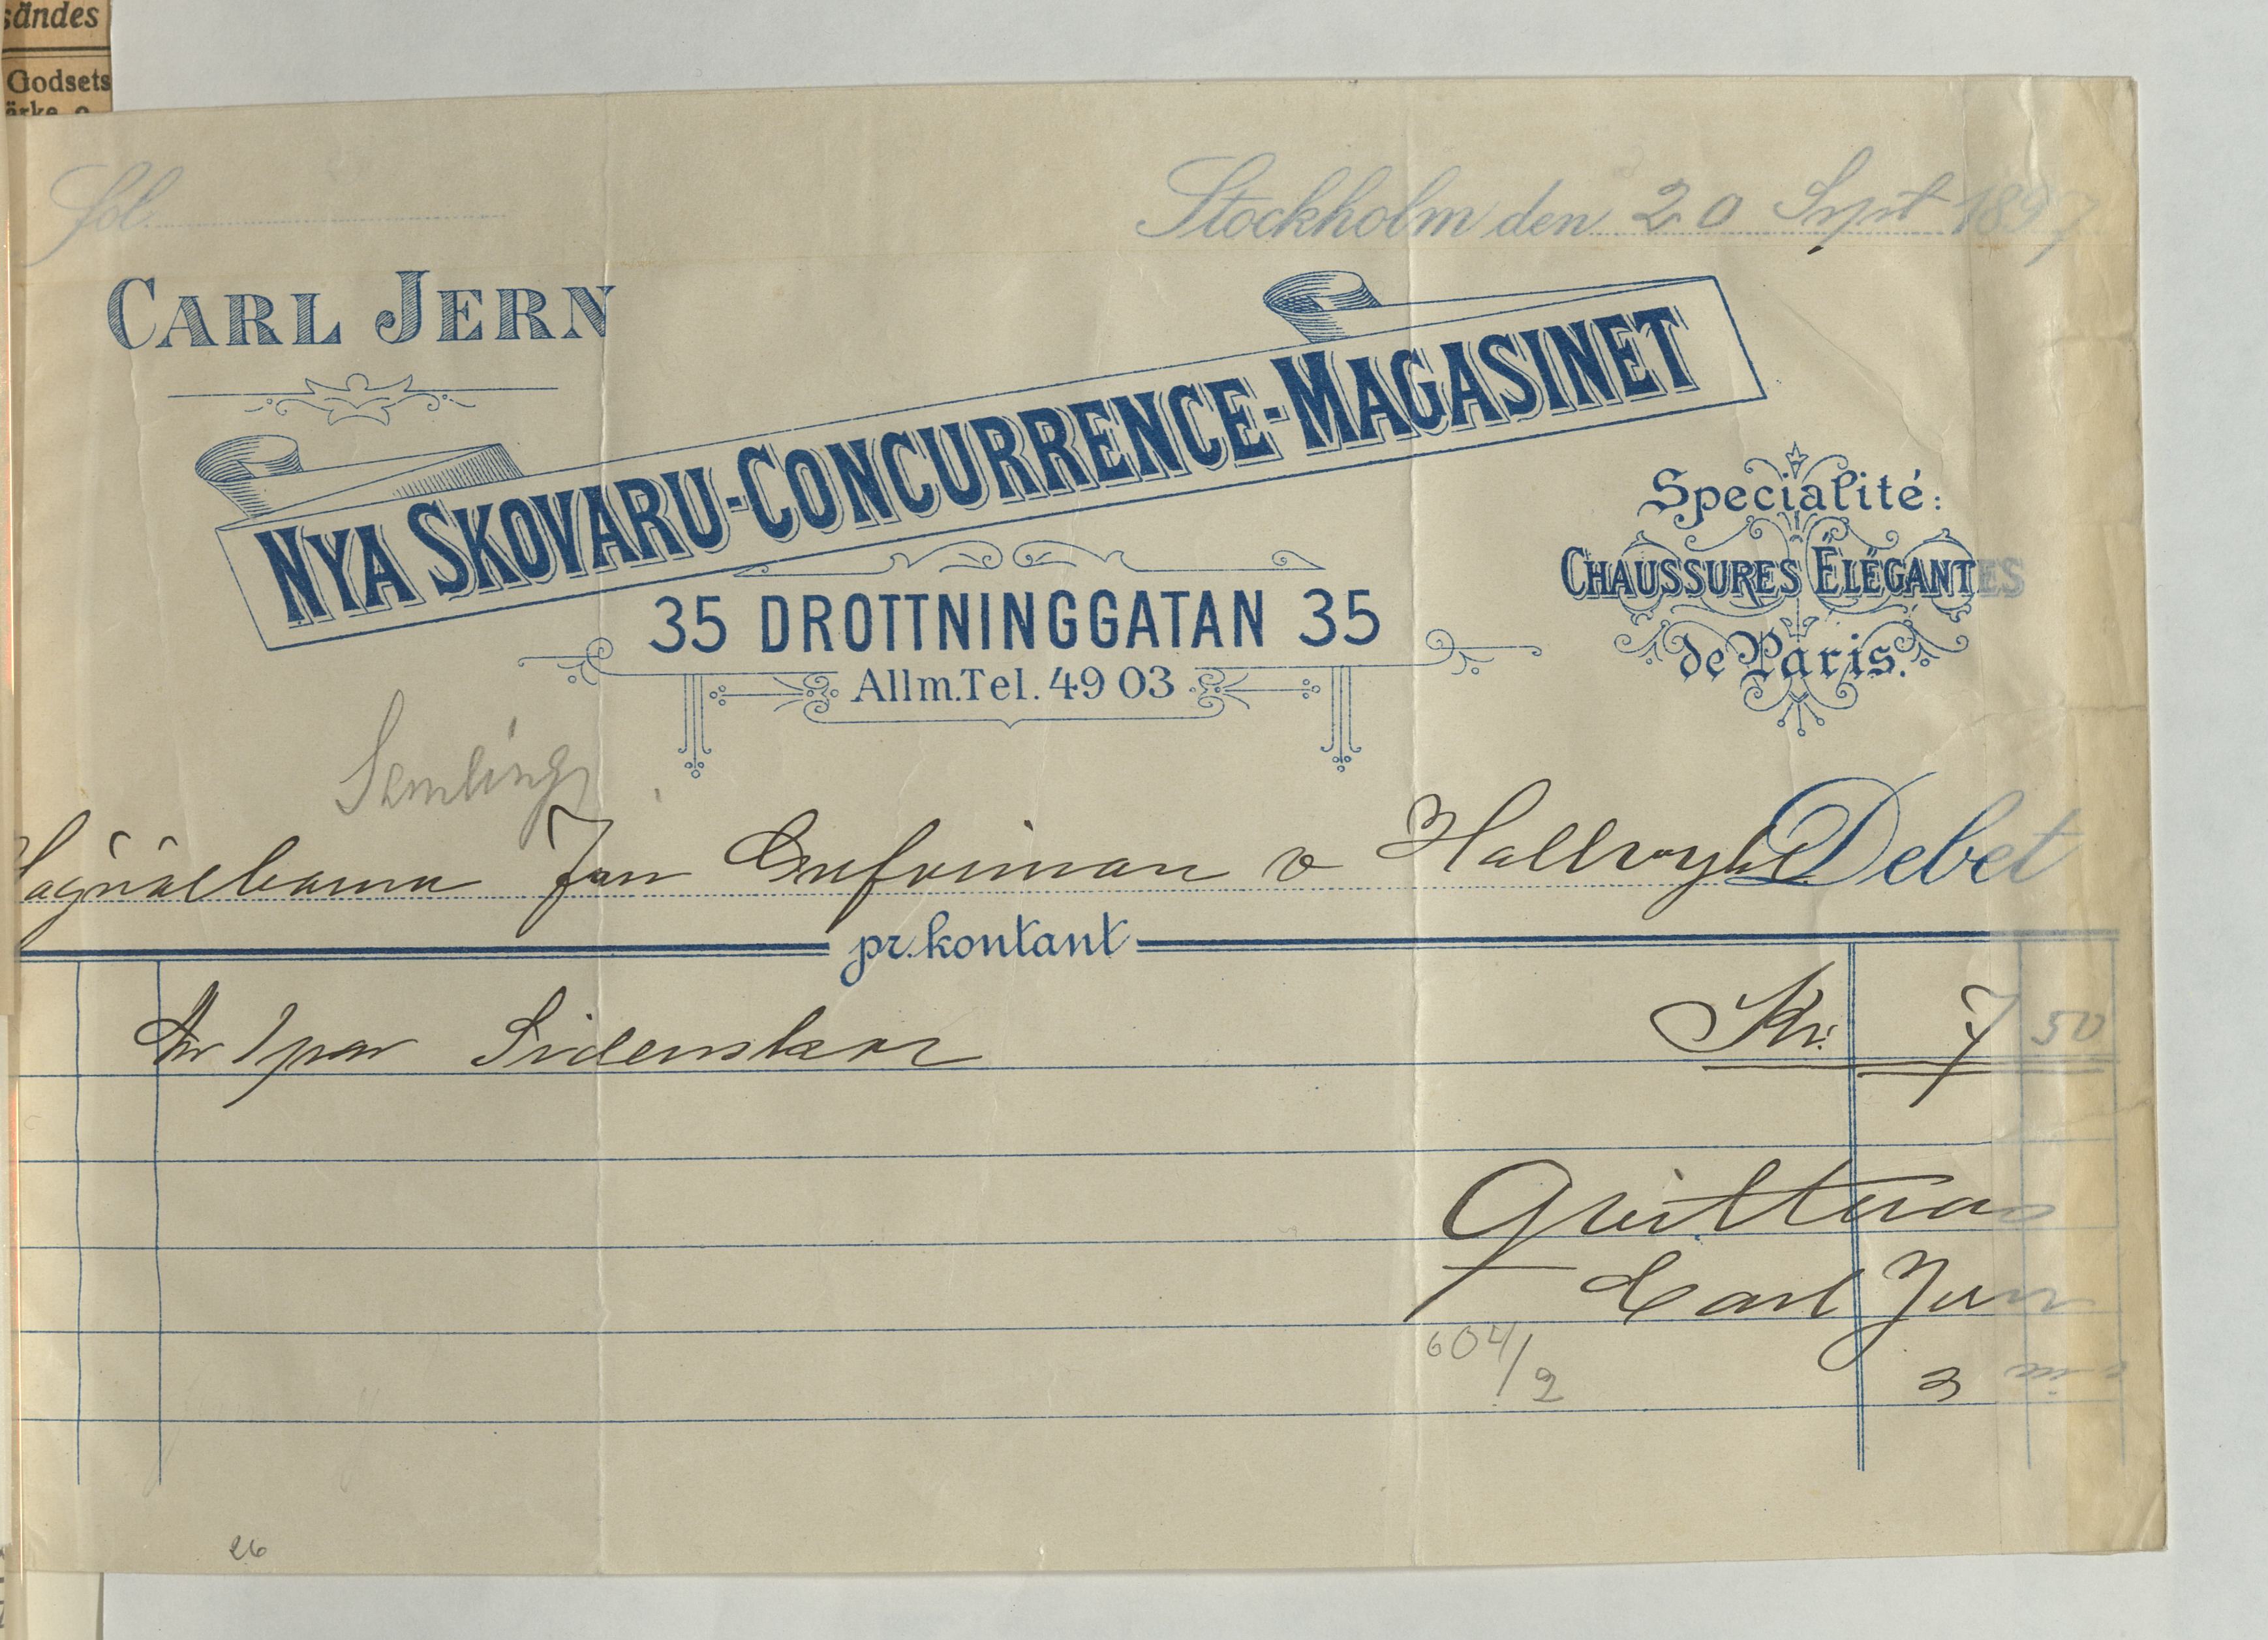 sändes
Godsets
fol.
Stockholm den 20 Sept 1897
CARL JERN
NYA SKOVARU-CONCURRENCE-MAGASINET
35 DROTTNINGGATAN 35
Allm. Tel. 49 03
Specialité:
CHAUSSURES ÉLÉGANTES
de Paris.
Högvälborna Fru Grefvinnan v Hallwyhl Debet
pr. kontant
1 par Sidenskor Kr. 7 50
Qvitteras
Carl Jern
604/2
26